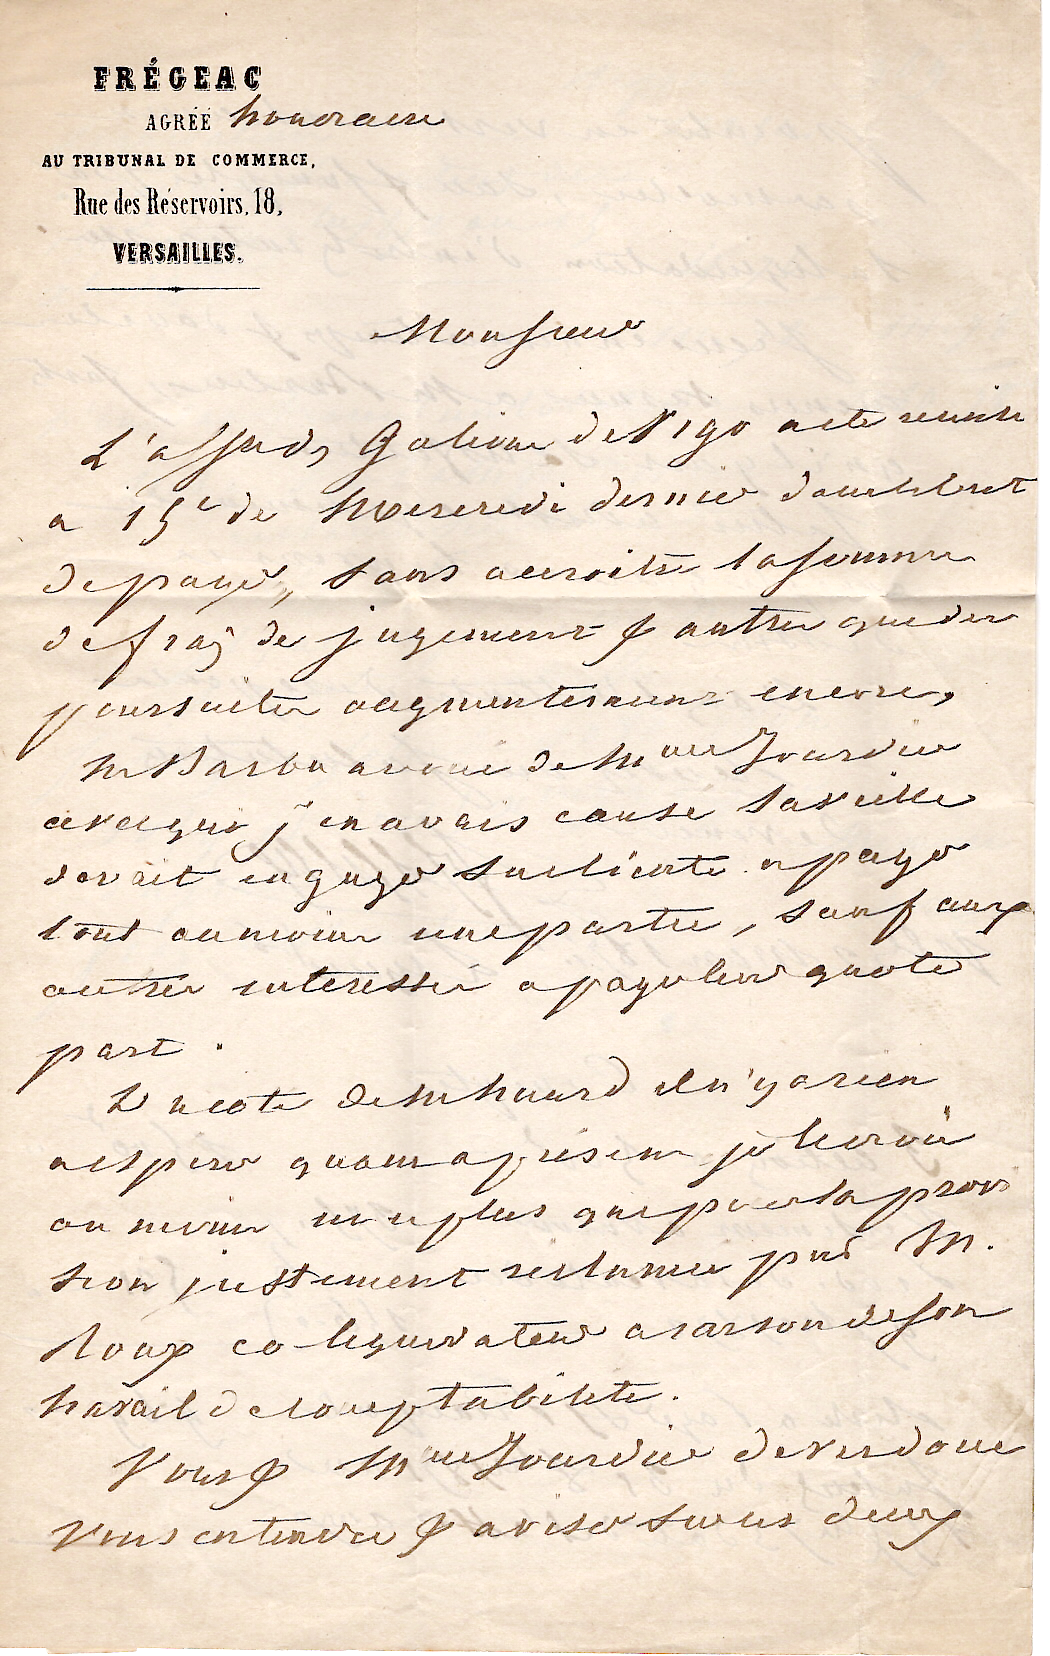 FRÉGEAC
AGRÉÉ honoraire
AU TRIBUNAL DE COMMERCE,
Rue des Réservoirs, 18,
VERSAILLES.
Monsieur
L'aff des Galions de Vigo a ete remise
a 15e de Mercredi dernier
de payer, sans accroitre la somme
de frais de jugement & autres que des
poursuites augmenteraient encore,
Mr Barbu avoué de Mme Jourdin
avec qui j'en avais causé la veille
devait engager sa cliente a payer
tout au moins une partie, sauf aux
autres intéressés a payer leur quote
part.
Du coté de M huard il n'y a rien
a esperer quant a présent je le crois
au moins non plus que pour la provi
sion justement reclamée par M.
Roux co-liquidateur a raison de son
travail de comptabilité.
Vous & Mme Jourdin devez donc
vous entendre & aviser sur ces deux